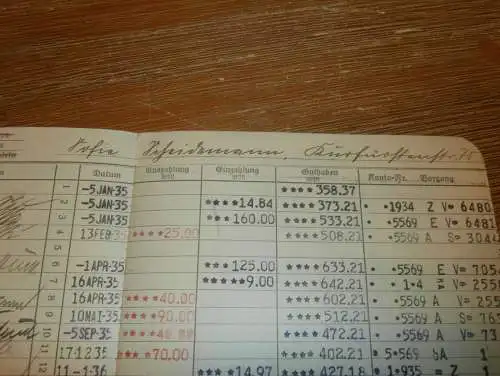 Sofie Scheidemann, Kurfürstenstr. 75
Datum Auszahlung Einzahlung Guthaben Konto-Nr. Vorgang
1 -5JAN35 ****358.37
2 -5JAN35 ***14.84 ****373.21 • •1934 Z V= 6480
3 -5JAN35 ***160.00 ****533.21 • •5569 E V= 6481
4 13FEB35 ****25.00 ****508.21 •5569 A S= 3044
5
6 -1APR35 ***125.00 ****633.21 • •5569 E V= 705
7 16APR35 ****9.00 ****642.21 • 1•4 V= 255
8 16APR35 ****40.00 ****602.21 • •5569 A V= 255
9 10MAI35 ****90.00 ****512.21 • •5569 A S= 76
10 -5SEP35 ****40.00 ****472.21 • •5569 A V= 73
11 17.12.35 ****70.00 ****402.21 • 5•569 A 1
12 11-1.36 ****14.97 ****427.18 • 1•935 = Z 1